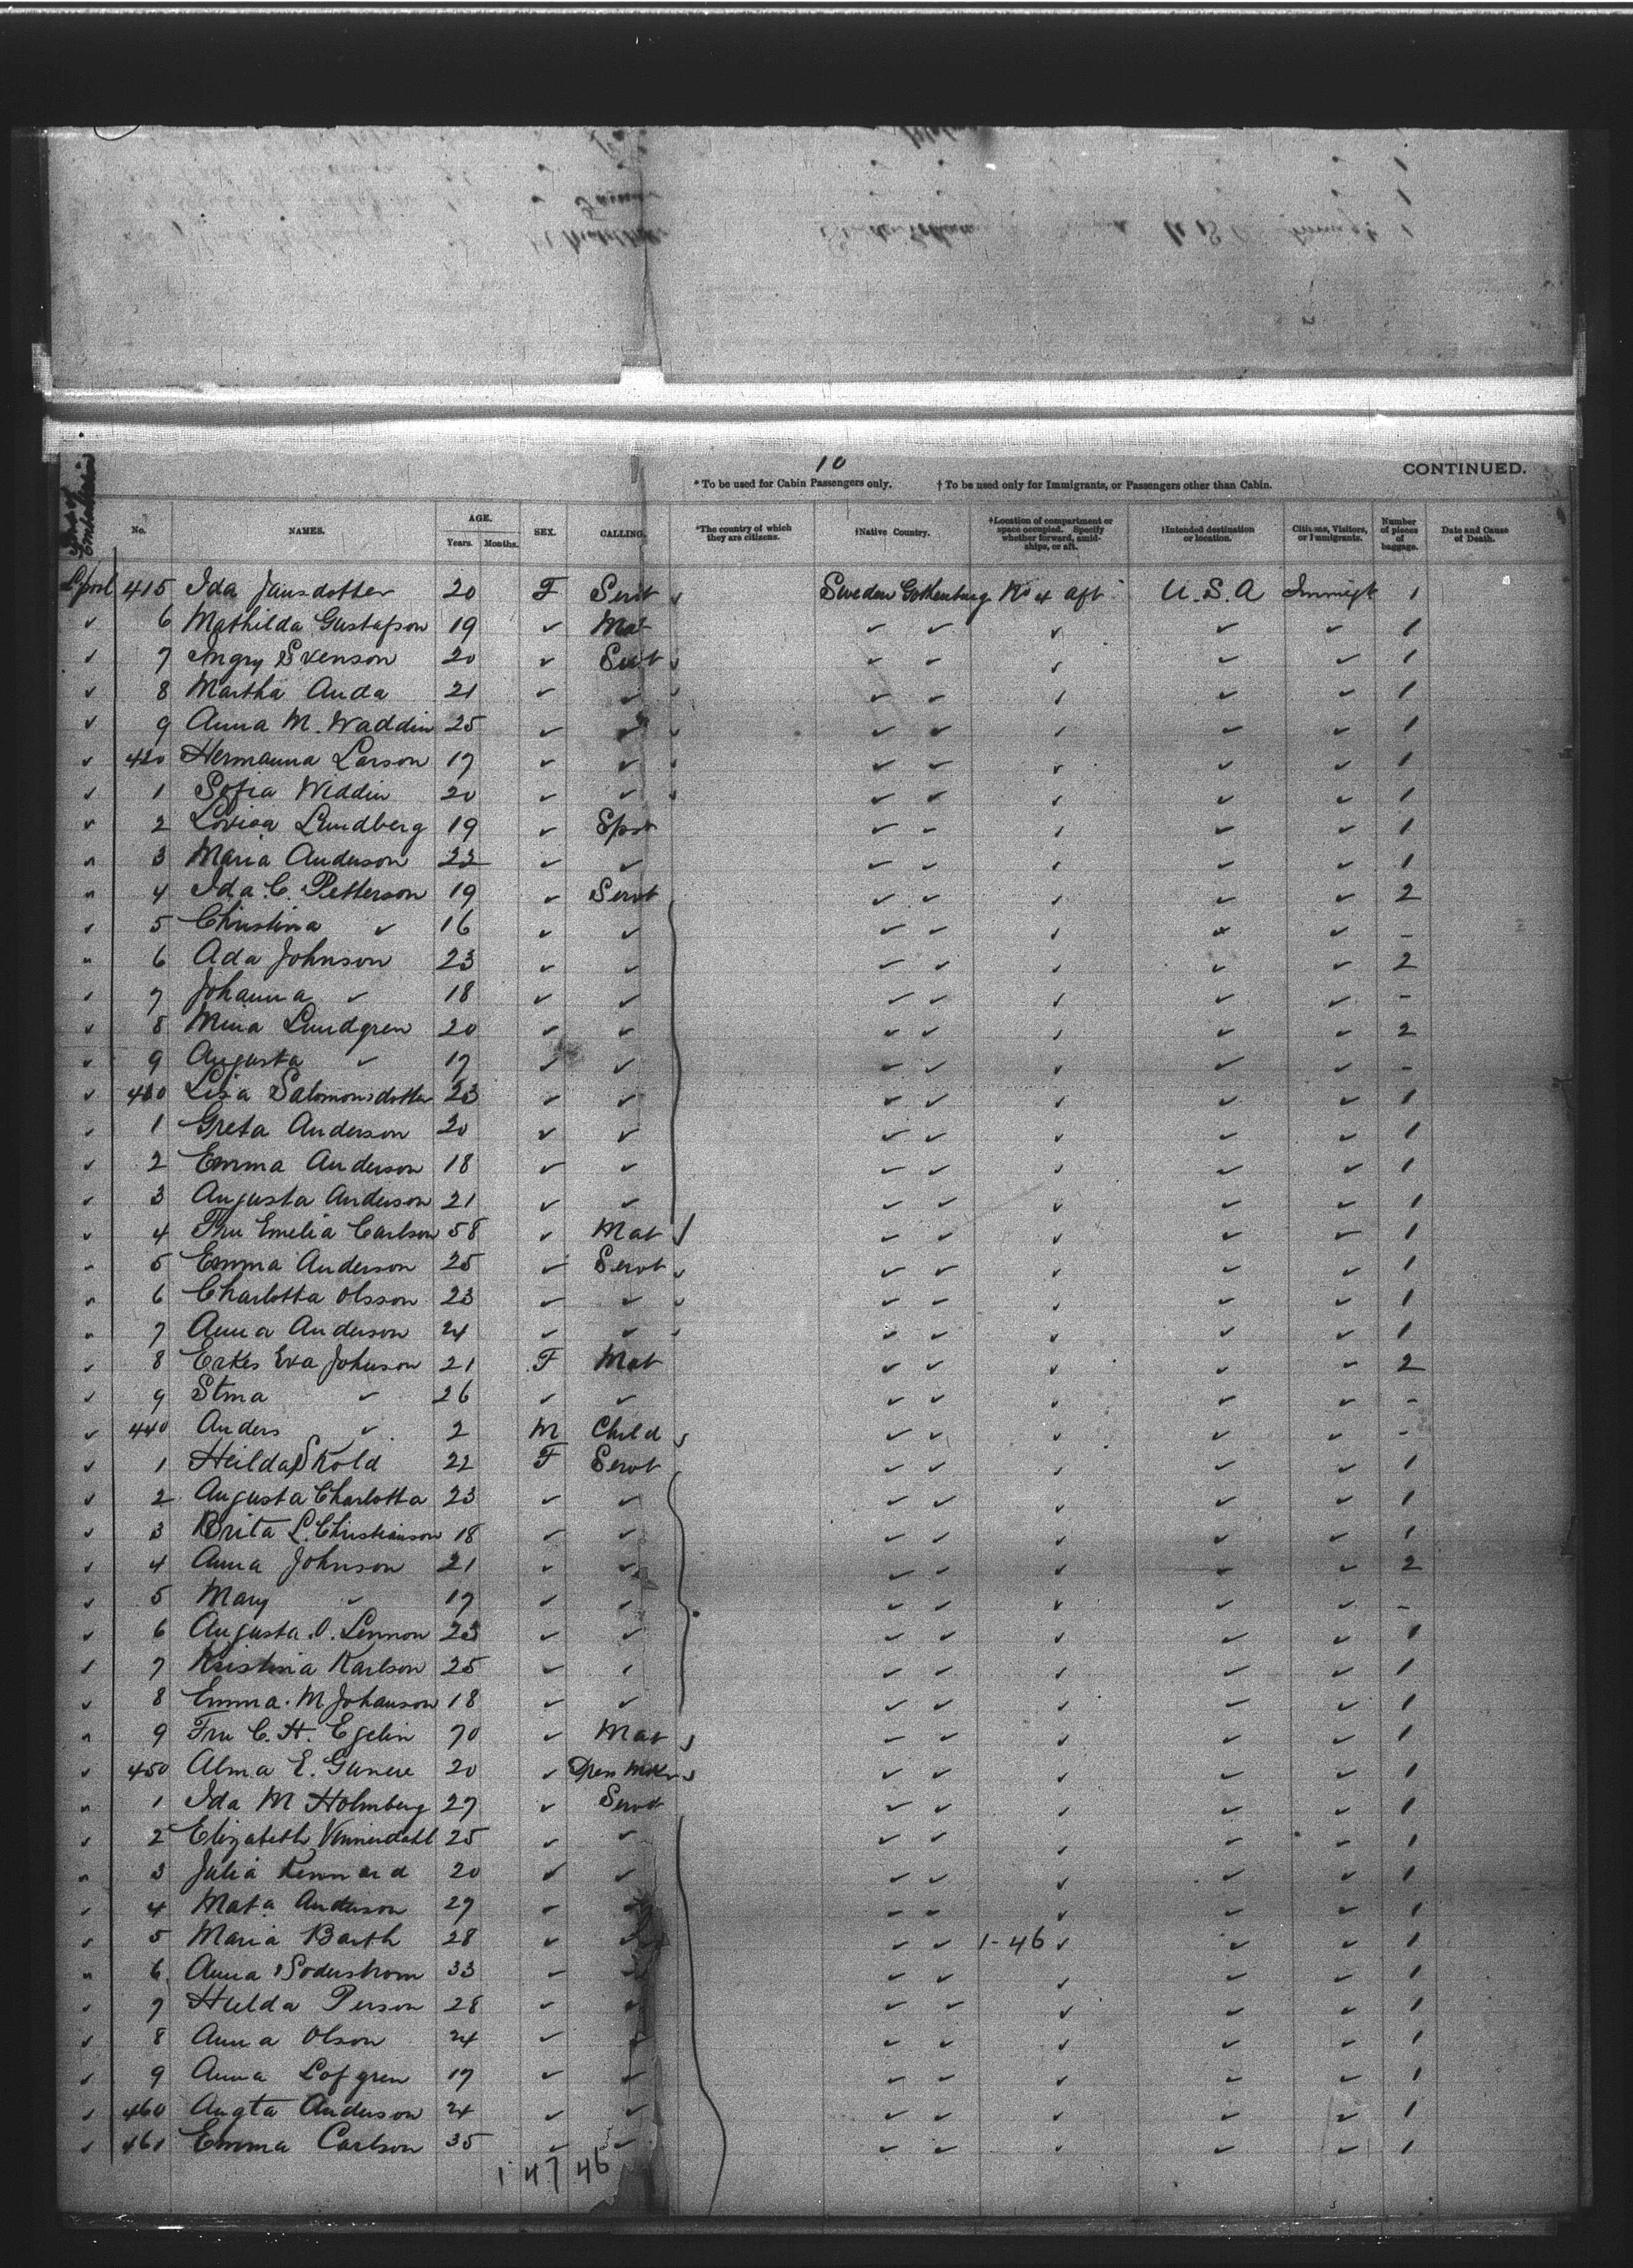 10
CONTINUED.
*To be used for Cabin Passengers only. †To be used only for Immigrants, or Passengers other than Cabin.
Port of Embarkation
No. NAMES. AGE. Years. Months. SEX. CALLING. *The country of which they are citizens. †Native Country. †Location of compartment or space occupied. Specify whether forward, amidships, or aft. †Intended destination or location. Citizens, Visitors, or Immigrants. Number of pieces of baggage. Date and Cause of Death.
L'pool 415 Ida Jansdotter 20 F Servt Sweden Gothenburg No 4 aft U.S.A Immigt 1
✓ 6 Mathilda Gustafson 19 ✓ Mat ✓ ✓ ✓ ✓ ✓ 1
✓ 7 Ingry Svenson 20 ✓ Servt ✓ ✓ ✓ ✓ ✓ 1
✓ 8 Martha Anda 21 ✓ ✓ ✓ ✓ ✓ ✓ ✓ 1
✓ 9 Anna M. Waddin 25 ✓ ✓ ✓ ✓ ✓ ✓ ✓ 1
✓ 420 Hermanna Larson 17 ✓ ✓ ✓ ✓ ✓ ✓ ✓ 1
✓ 1 Sofia Widdin 20 ✓ ✓ ✓ ✓ ✓ ✓ ✓ 1
✓ 2 Lovisa Lundberg 19 ✓ Spst ✓ ✓ ✓ ✓ ✓ 1
" 3 Maria Anderson 22 ✓ ✓ ✓ ✓ ✓ ✓ ✓ 1
" 4 Ida C. Petterson 19 ✓ Servt ✓ ✓ ✓ ✓ ✓ 2
✓ 5 Christina ✓ 16 ✓ ✓ ✓ ✓ ✓ ✓ ✓ -
" 6 Ada Johnson 23 ✓ ✓ ✓ ✓ ✓ ✓ ✓ 2
✓ 7 Johanna ✓ 18 ✓ ✓ ✓ ✓ ✓ ✓ ✓ -
✓ 8 Mina Lundgren 20 ✓ ✓ ✓ ✓ ✓ ✓ ✓ 2
✓ 9 Augusta ✓ 17 ✓ ✓ ✓ ✓ ✓ ✓ ✓ -
✓ 430 Lisa Salomonsdotter 23 ✓ ✓ ✓ ✓ ✓ ✓ ✓ 1
✓ 1 Greta Anderson 20 ✓ ✓ ✓ ✓ ✓ ✓ ✓ 1
✓ 2 Emma Anderson 18 ✓ ✓ ✓ ✓ ✓ ✓ ✓ 1
✓ 3 Augusta Anderson 21 ✓ ✓ ✓ ✓ ✓ ✓ ✓ 1
✓ 4 Fru Emelia Carlson 58 ✓ Mat ✓ ✓ ✓ ✓ ✓ 1
" 5 Emma Anderson 25 ✓ Servt ✓ ✓ ✓ ✓ ✓ 1
" 6 Charlotta Olsson 23 ✓ ✓ ✓ ✓ ✓ ✓ ✓ 1
" 7 Anna Anderson 24 ✓ ✓ ✓ ✓ ✓ ✓ ✓ 1
✓ 8 Erkes Eva Johnson 21 F Mat ✓ ✓ ✓ ✓ ✓ 2
✓ 9 Stma ✓ 26 ✓ ✓ ✓ ✓ ✓ ✓ ✓ -
✓ 440 Anders ✓ 2 M Child ✓ ✓ ✓ ✓ ✓ -
✓ 1 Heilda Skold 22 F Servt ✓ ✓ ✓ ✓ ✓ 1
✓ 2 Augusta Charlotta 23 ✓ ✓ ✓ ✓ ✓ ✓ ✓ 1
✓ 3 Brita L. Christianson 18 ✓ ✓ ✓ ✓ ✓ ✓ ✓ 1
✓ 4 Anna Johnson 21 ✓ ✓ ✓ ✓ ✓ ✓ ✓ 2
✓ 5 Mary ✓ 17 ✓ ✓ ✓ ✓ ✓ ✓ ✓ -
✓ 6 Augusta O. Lennon 23 ✓ ✓ ✓ ✓ ✓ ✓ ✓ 1
✓ 7 Kristina Karlson 25 ✓ ✓ ✓ ✓ ✓ ✓ ✓ 1
✓ 8 Emma M Johanson 18 ✓ ✓ ✓ ✓ ✓ ✓ ✓ 1
" 9 Fru C. H. Egelin 70 ✓ Mat ✓ ✓ ✓ ✓ ✓ 1
✓ 450 Alma E. 20 ✓ Dress mkr ✓ ✓ ✓ ✓ ✓ 1
" 1 Ida M Holmberg 27 ✓ Servt ✓ ✓ ✓ ✓ ✓ 1
✓ 2 Elizabeth Vennerdahl 25 ✓ ✓ ✓ ✓ ✓ ✓ ✓ 1
" 3 Julia Kennard 20 ✓ ✓ ✓ ✓ ✓ ✓ ✓ 1
✓ 4 Mata Anderson 27 ✓ ✓ ✓ ✓ ✓ ✓ 1
✓ 5 Maria Barth 28 ✓ ✓ ✓ 1-46 ✓ ✓ ✓ 1
" 6 Anna Soderstrom 33 ✓ ✓ ✓ ✓ ✓ ✓ 1
✓ 7 Hulda Person 28 ✓ ✓ ✓ ✓ ✓ ✓ ✓ 1
✓ 8 Anna Olson 24 ✓ ✓ ✓ ✓ ✓ ✓ 1
✓ 9 Anna Lofgren 17 ✓ ✓ ✓ ✓ ✓ ✓ ✓ 1
✓ 460 Augta Anderson 24 ✓ ✓ ✓ ✓ ✓ ✓ ✓ 1
✓ 461 Emma Carlson 35 ✓ ✓ ✓ ✓ ✓ ✓ ✓ 1
1 47 46